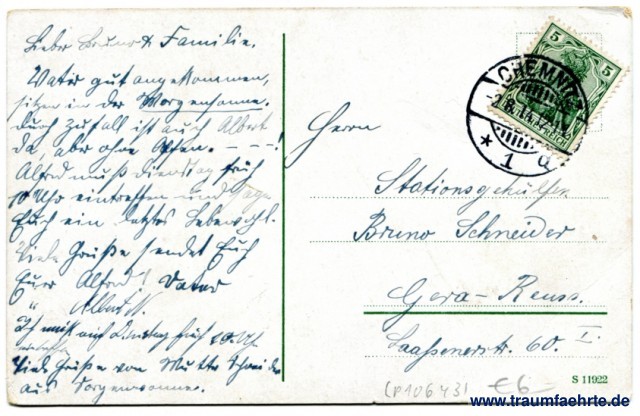 Lieber Bruno & Familie.
Vater gut angekommen,
sitzen in der Morgensonne.
durch Zufall ist auch Albert
da, aber ohne Alten. - - - !
Alfred muß Dienstag früh
10 Uhr eintreffen und sage
Euch ein letztes Lebewohl.
Viele Grüße sendet Euch
Euer Alfred! Vater
" Albert N.
Ich muß auf Dienstag früh 10 Uhr
Viele Grüße von Mutter Schneider
aus Morgensonne.
5 5
CHEMNITZ
1 d
Herrn
Stationsgehülfen
Bruno Schneider
Gera-Reuss.
Laassenerstr. 60. I.
S 11922
(P10643) €6-
www.traumfaehrte.de